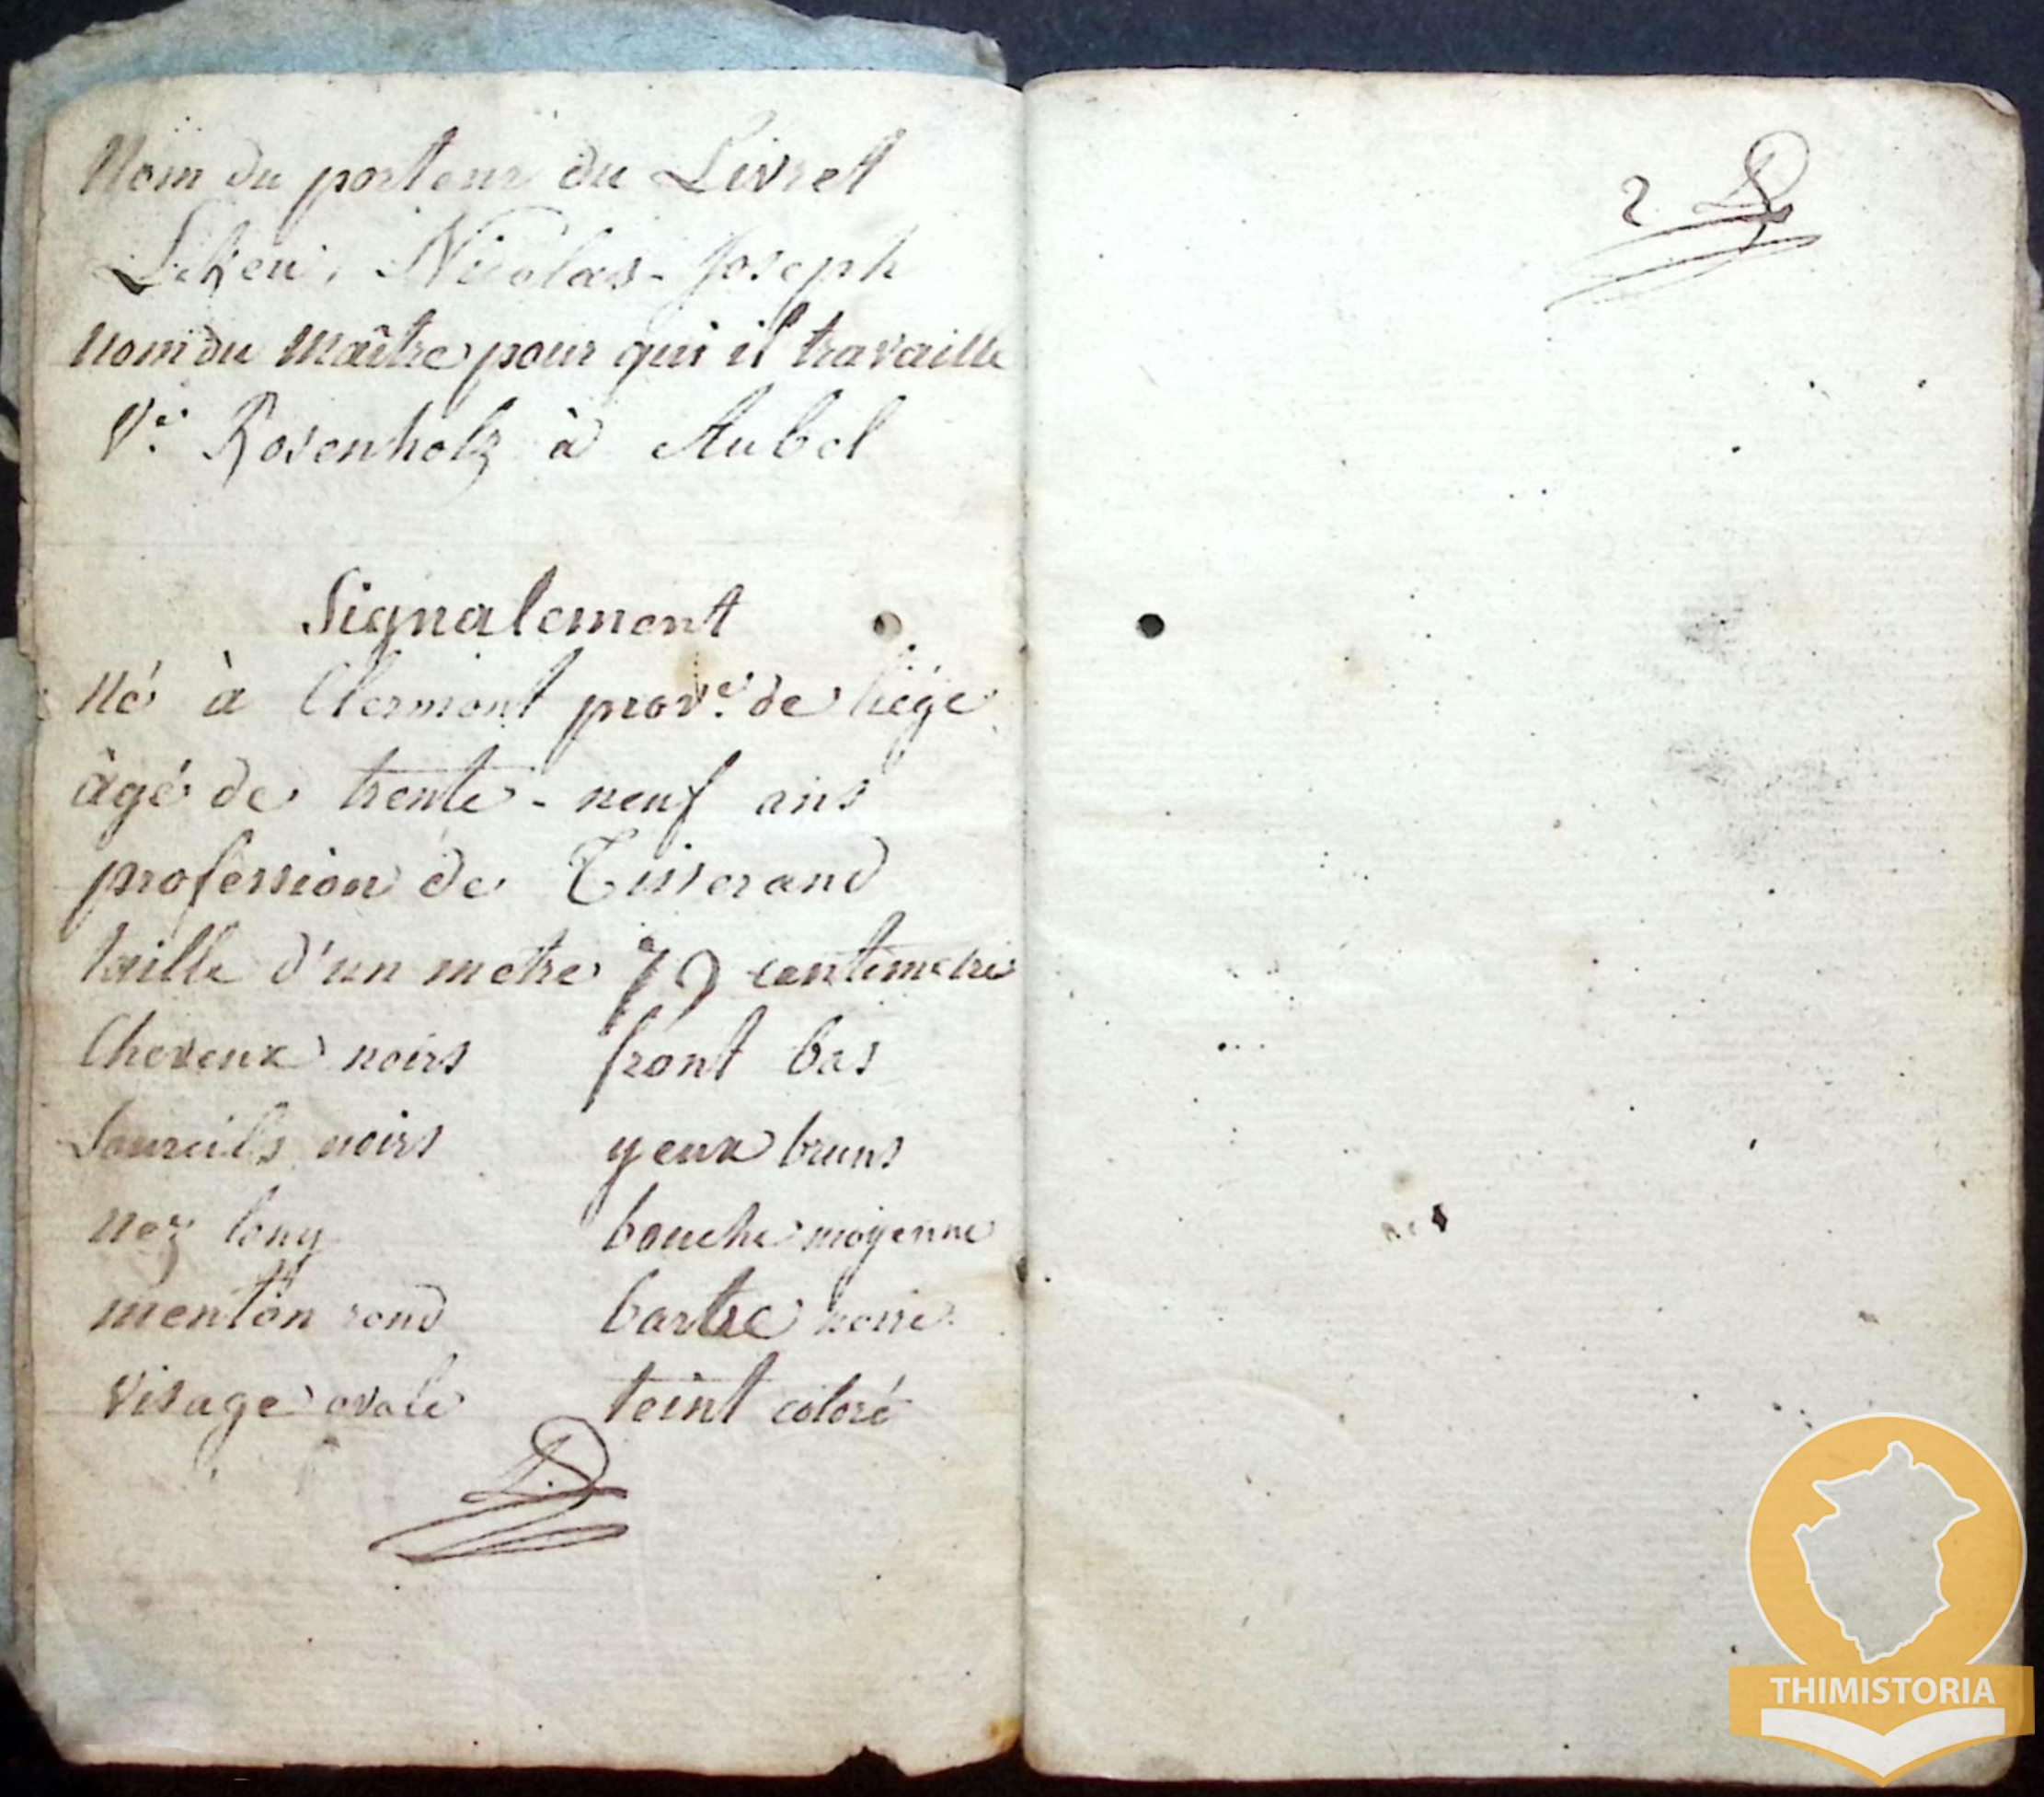 Nom du porteur du Livret
Lekeu, Nicolas-Joseph
Nom du Maître pour qui il travaille
Ve. Rosenholz à Aubel
Signalement
Né à Clermont prov.e de liége
âgé de trente-neuf ans
profession de Tisserand
taille d'un metre 79 centimetre
Cheveux noirs front bas
Sourcils noirs yeux bruns
nez long bouche moyenne
menton rond barbe noire
visage ovale teint coloré
2
THIMISTORIA